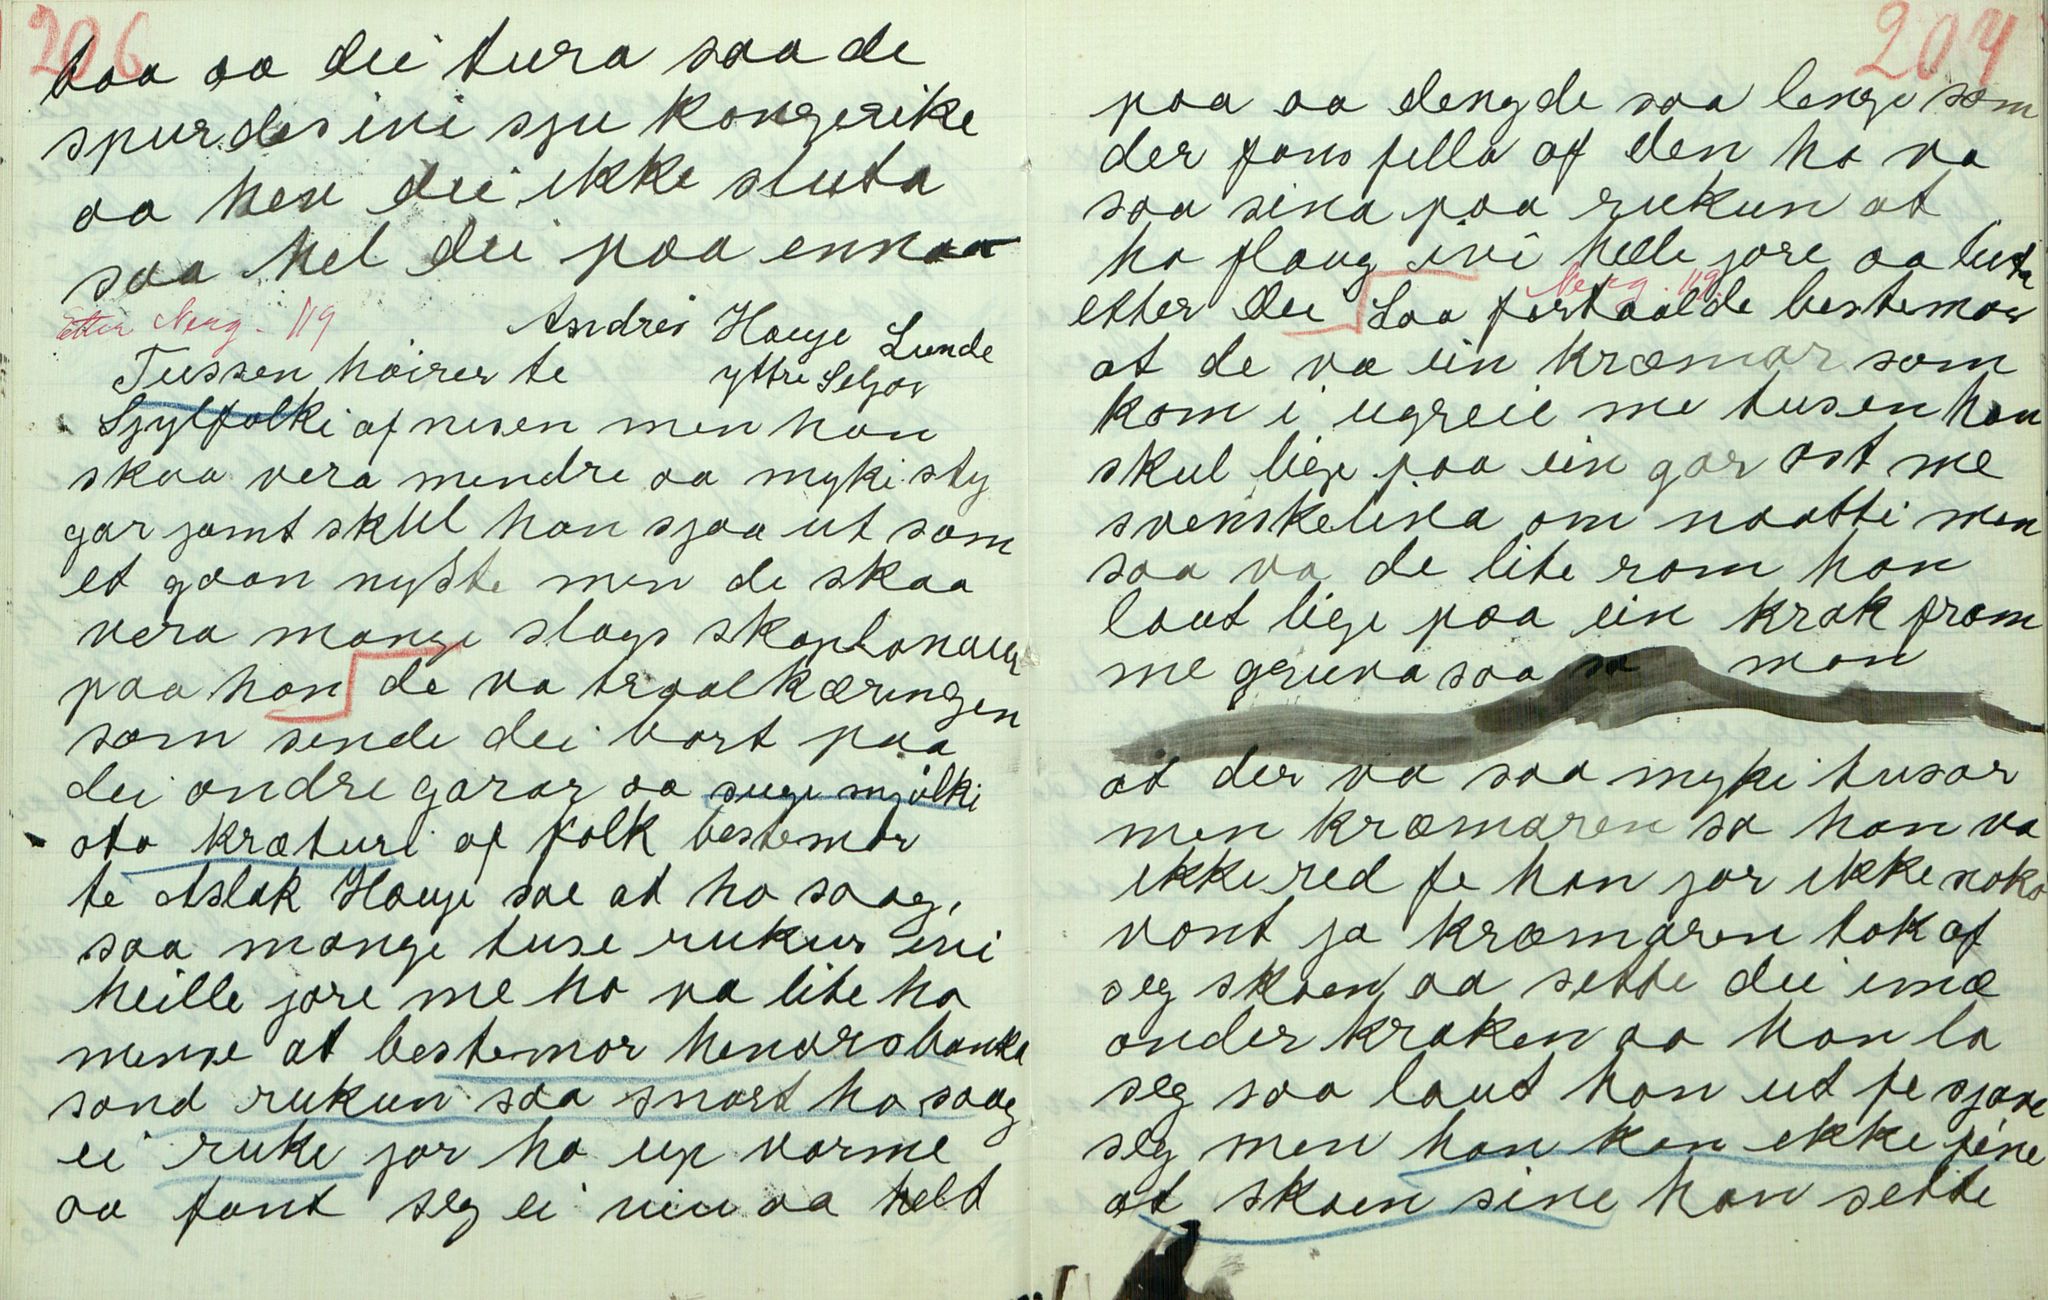 206
taa aa dei tura saa de
spurdes ivi sju kongerike
aa hev dei ikke sluta
saa hel dei paa ennaa
Etter Nerg. 119
Andres Hauge Lunde
yttre Seljor
Tussen høirer te
Sjylfolki af nesen men han
skaa vera mendre aa myki sty
gar jamt skul han sjaa ut som
et graan nyste men de skaa
vera mange slags skaplonaur
paa han de va traalkæringen
som sende dei bort paa
dei andre garar aa suge mjølki
ota kræturi af folk bestemor
te Aslak Hauge sae at ho saag,
saa mange tuse rukur ivi
heille jore me ho va lite ho
mense at bestemor henars banka
sand rukun saa snart ho saag
ei ruke jor ho up varme
aa fant seg ei viu aa helt
204
paa aa dengde saa lenge som
der fans filla af den ho va
saa sina paa rukun at
ho flaug ivi helle jore aa leita
etter dei Saa fortaalde bestemor
Nerg. 119.
at de va ein kræmar som
kom i ugreie me tusen han
skul lige paa ein gar ost me
svenskelina om naatti men
saa va de lite rom han
laut lige paa ein krak fram
me gruva saa sa man
at der va saa myki tusar
men kræmaren sa han va
ikke red fe han jor ikke noko
vont ja kræmaren tok af
seg skoen aa sette dei inæ
onder kraken aa han la
seg saa laut han ut fe sjaae
seg men han kan ikke fine
at skoen sine han sette